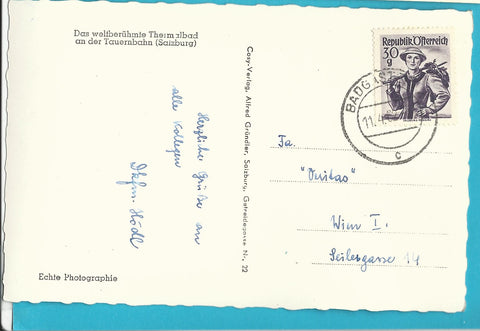 Das weltberühmte Thermalbad
an der Tauernbahn (Salzburg)
Herzliche Grüße an
alle Kollegen
Echte Photographie
Cosy-Verlag, Alfred Gründler, Salzburg, Getreidegasse Nr. 22
Republik Österreich
30
g
BADGAST
11.
c
Fa.
"Veritas"
Wien I.
Seilergasse 14